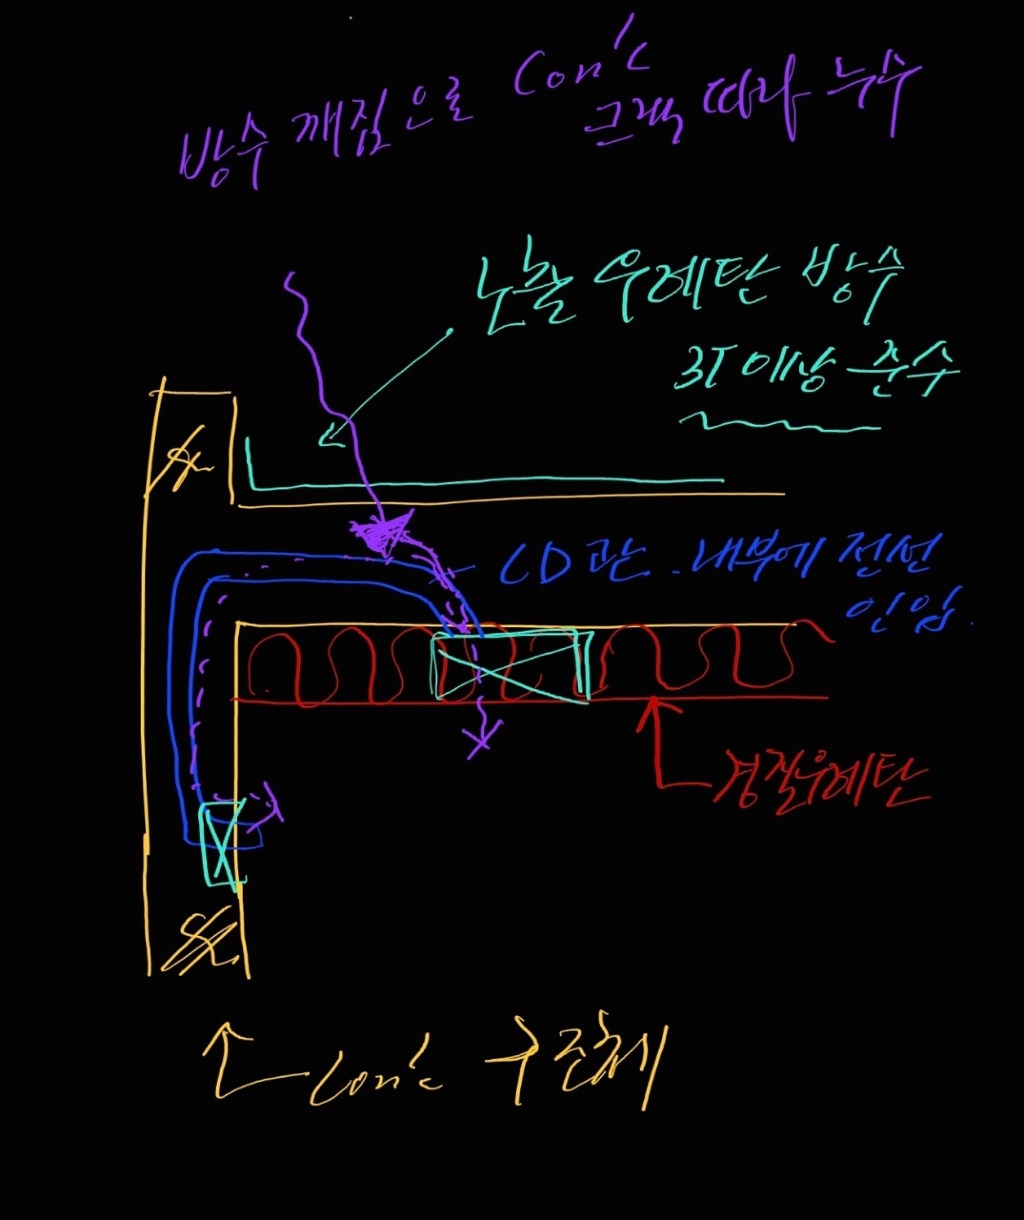 방수 깨짐으로 Con'c
크랙 따라 누수
노출 우레탄 방수
3T 이상 준수
CD관. 내부에 전선
인입.
경질우레탄
Con'c 구조체